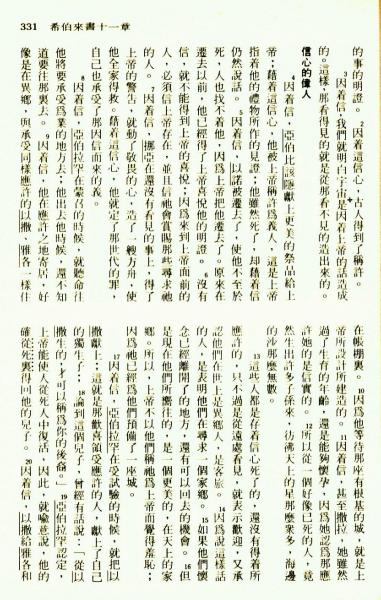 331 希伯來書十一章
的事的明證。 2因着這信心,古人得到了稱許。
3因着信,我們就明白宇宙是因着上帝的話造成
的。這樣,那看得見的就是從那看不見的造出來的。
信心的偉人
4因着信,亞伯比該隱獻上更美的祭品給上
帝;藉着這信心,他被上帝稱許為義人,這是上帝
指着他的禮物所作的見證;他雖然死了,却藉着信
仍然說話。 5因着信,以諾被遷去了,使他不至於
死,人也找不着他,因為上帝把他遷去了。原來在
遷去以前,他已經得了上帝喜悅他的明證。 6沒有
信,就不能得到上帝的喜悅;因為來到上帝面前的
人,必須信上帝存在,並且信祂會賞賜那些尋求祂
的人。 7因着信,挪亞在還沒有看見的事上,得了
上帝的警告,就動了敬畏的心,造了一艘方舟,使
他全家得救。藉着這信心,他就定了那世代的罪,
自己也承受了那因信而來的義。
8因着信,亞伯拉罕在蒙召的時候,就聽命往
他將要承受為業的地方去;他出去的時候,還不知
道要往那裏去。 9因着信,他在應許之地寄居,好
像是在異鄉,與承受同樣應許的以撒、雅各一樣住
在帳棚裏。 10因為他等待那座有根基的城,就是上
帝所設計所建造的。 11因着信,甚至撒拉,她雖然
過了生育的年齡,還是能夠懷孕,因為她認為那應
許她的是信實的。 12所以從一個好像已死的人,竟
然生出許多子孫來,彷彿天上的星那麼衆多,海邊
的沙那麼無數。
13這些人都是存着信心死了的,還沒有得着所
應許的,只不過是從遠處看見,就表示歡迎,又承
認他們在世上是異鄉人,是客旅。 14因為說這樣話
的人,是表明他們在尋求一個家鄉。 15如果他們懷
念已經離開了的地方,還有可以回去的機會。 16但
是現在他們所嚮往的,是一個更美的,在天上的家
鄉。所以,上帝不以他們稱祂為上帝而覺得羞恥;
因為祂已經為他們預備了一座城。
17因着信,亞伯拉罕在受試驗的時候,就把以
撒獻上;這就是那歡喜領受應許的人,獻上了自己
的獨生子; 18論到這個兒子,曾經有話說:「從以
撒生的,才可以稱為你的後裔。」 19亞伯拉罕認定,
上帝能使人從死人中復活,因此,就喻意說,他的
確從死裏得回他的兒子。 20因着信,以撒給雅各和